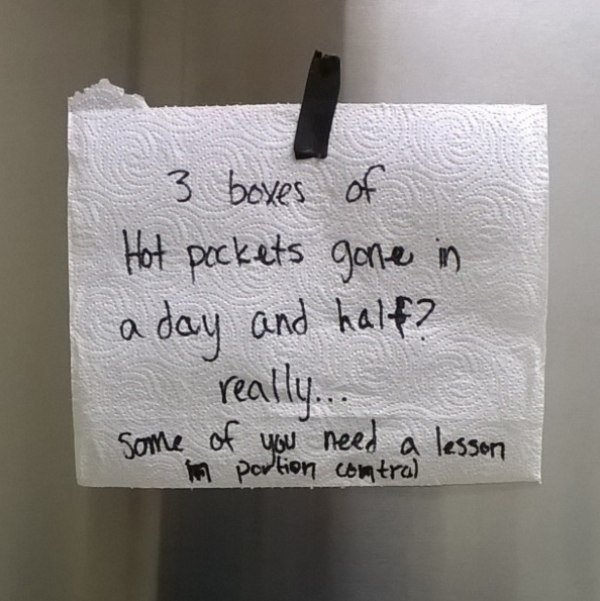 3 boxes of
Hot pockets gone in
a day and half?
really...
Some of you need a lesson
in portion control